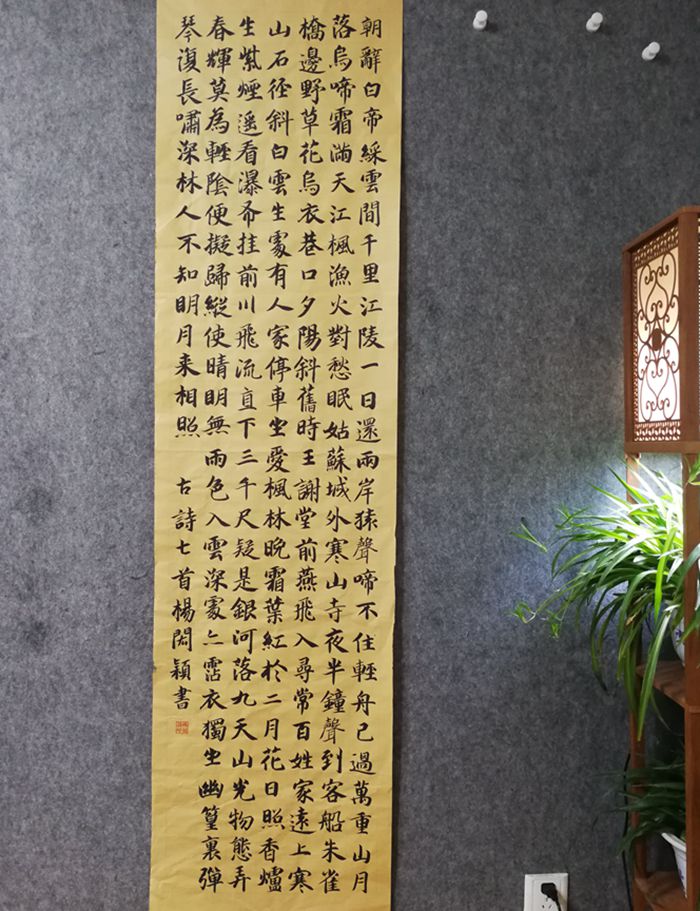 朝辭白帝綵雲間千里江陵一日還兩岸猿聲啼不住輕舟已過萬重山月
落烏啼霜滿天江楓漁火對愁眠姑蘇城外寒山寺夜半鐘聲到客船朱雀
橋邊野草花烏衣巷口夕陽斜舊時王謝堂前燕飛入尋常百姓家遠上寒
山石徑斜白雲生處有人家停車坐愛楓林晚霜葉紅於二月花日照香爐
生紫煙遙看瀑布挂前川飛流直下三千尺疑是銀河落九天山光物態弄
春輝莫為輕陰便擬歸縱使晴明無雨色入雲深處亦霑衣獨坐幽篁裏彈
琴復長嘯深林人不知明月来相照 古詩七首楊閎穎書